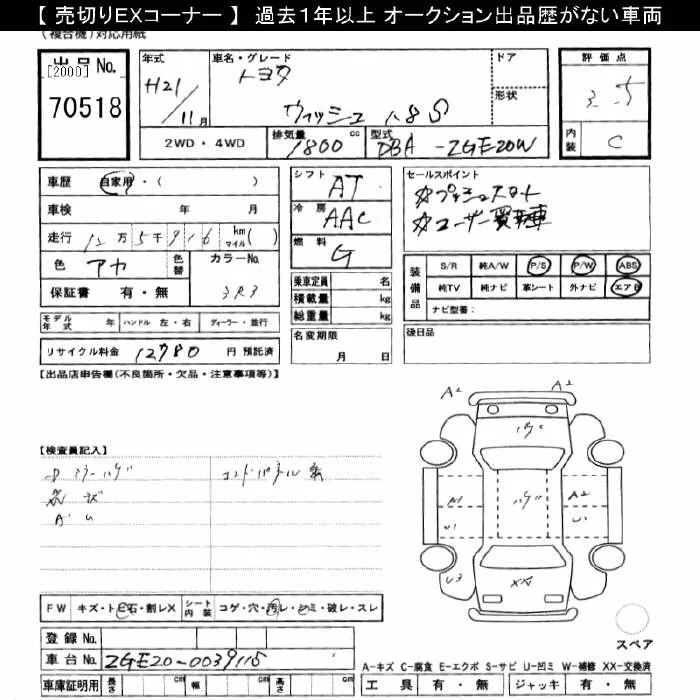 【 売切りEXコーナー 】 過去１年以上 オークション出品歴がない車両
(複合機)対応用紙
出品No.
[2000]
70518
年式
H21/11月
車名・グレード
トヨタ
ウィッシュ 1.8S
ドア
形状
評価点
3.5
内装
C
2WD・4WD
排気量
1800 cc
型式
DBA-ZGE20W
車歴 自家用・( )
車検 年 月
走行 12万5千916 km マイル( )
色 アカ 色替 カラーNo.
保証書 有・無 3R3
モデル年式 年 ハンドル 左・右 ディーラー・並行
リサイクル料金 12780 円 預託済
シフト AT
冷房 AAC
燃料 G
乗車定員 名
積載量 kg
総重量 kg
名変期限
月 日
セールスポイント
☆プッシュスタート
☆ユーザー買取車
装備品
S/R 純A/W P/S P/W ABS
純TV 純ナビ 革シート 外ナビ エアB
ナビ型番:
後日品
【出品店申告欄(不良箇所・欠品・注意事項等)】
【検査員記入】
FW キズ・ト ヒ石・割レX シート内装 コゲ・穴・汚レ・シミ・破レ・スレ
A2
A2
A1
A2
U1
U1
U3
XX
ハゲ
登録No.
車台No. ZGE20-0039115
車庫証明用 長さ cm 幅 cm 高さ cm
スペア
A-キズ C-腐食 E-エクボ S-サビ U-凹ミ W-補修 XX-交換済
工具 有・無 ジャッキ 有・無